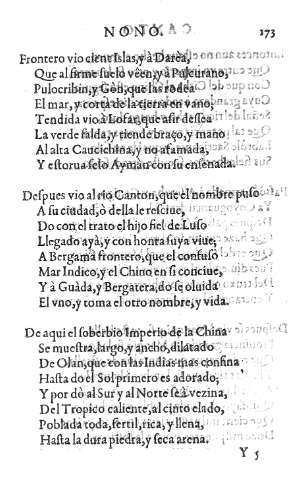 NONO. 173
Frontero vio cient Islas, y à Darea,
Que al firme suelo vèen, y à Puleurano,
Pulocribin, y Gòs, que las rodea
El mar, y corta de la tierra en vano;
Tendida viò a Losar, que asir dessea
La verde falda, y tiende braço, y mano
Al alta Caucichina, y no afamada,
Y estoruaselo Ayman con su ensenada.
Despues vio al rio Canton, que el nombre puso
A su ciudad, ò della le resciue,
Do con el trato el hijo fiel de Luso
Llegado ayà, y con honra suya viue;
A Bergama frontero, que el confuso
Mar Indico, y el Chino en si conciue,
Y à Guàda, y Bergatera, do se oluida
El vno, y toma el otro nombre, y vida.
De aqui el soberbio Imperio de la China
Se muestra, largo, y ancho, dilatado
De Olan, que con las Indias mas confina
Hasta do el Sol primero es adorado;
Y por dò al Sur y al Norte seà vezina,
Del Tropico caliente, al cinto elado,
Poblada toda, fertil, rica, y llena,
Hasta la dura piedra, y seca arena.
Y 5